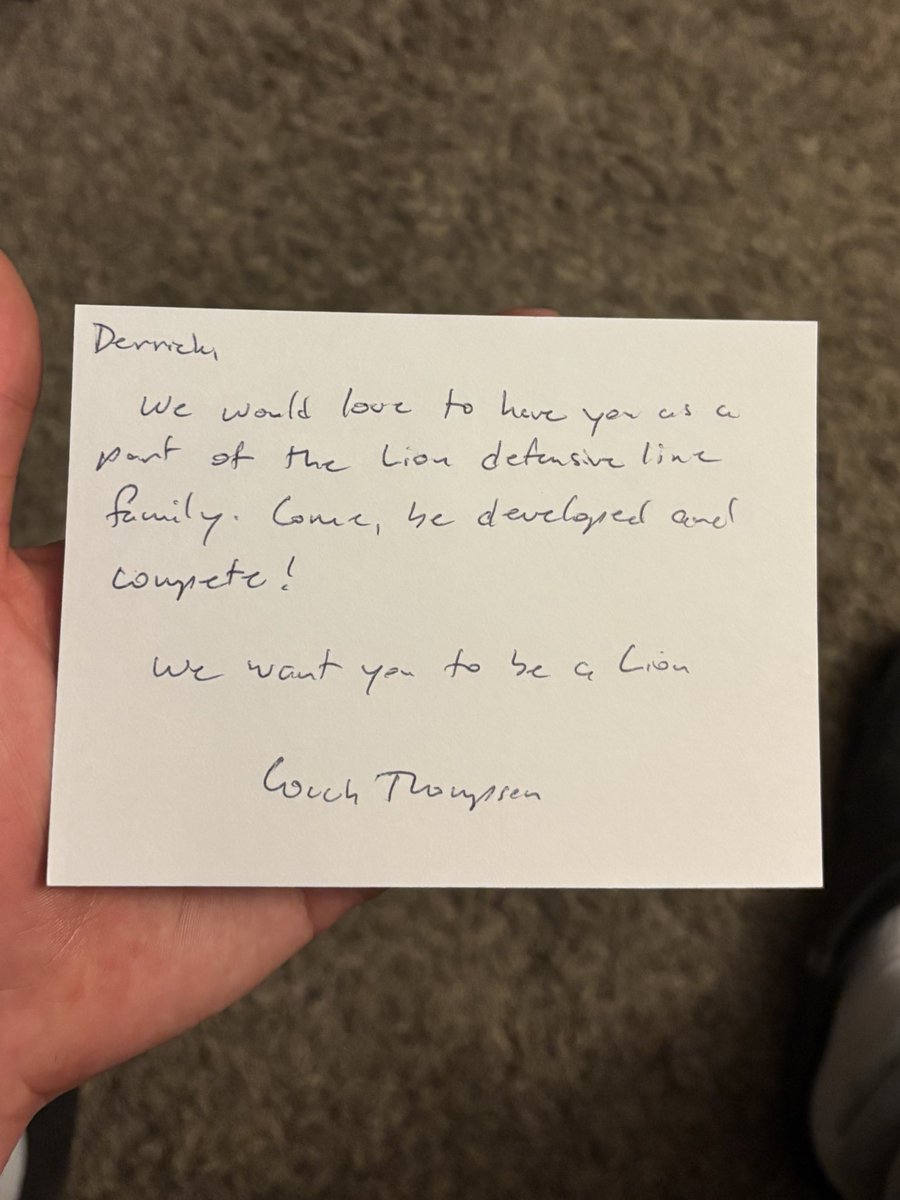 Derrick,
We would love to have you as a
part of the Lion defensive line
family. Come, be developed and
compete!
We want you to be a Lion
Coach Thompsen